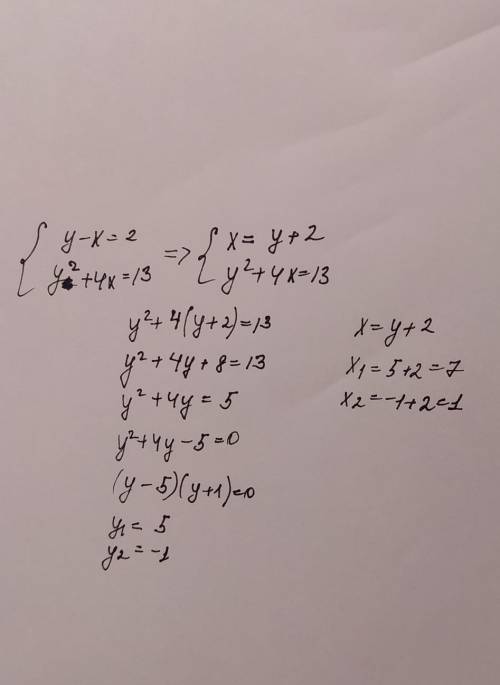 y-x=2 => x= y+2
y²+4x=13 y²+4x=13
y²+4(y+2)=13
y²+4y+8=13
y²+4y=5
y²+4y-5=0
(y-5)(y+1)=0
y₁=5
y₂=-1
x=y+2
x₁=5+2=7
x₂=-1+2=1